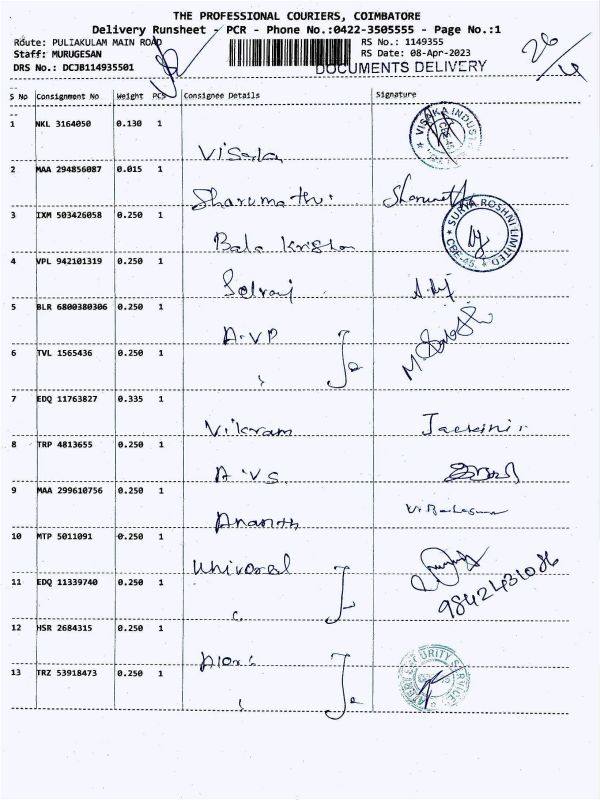 THE PROFESSIONAL COURIERS, COIMBATORE
Delivery Runsheet - PCR - Phone No.:0422-3505555 - Page No.:1
Route: PULIAKULAM MAIN ROAD
RS No.: 1149355
Staff: MURUGESAN
RS Date: 08-Apr-2023
DRS No.: DCJB114935501
DOCUMENTS DELIVERY
26/4
S No Consignment No Weight PCS Consignee Details Signature
1 NKL 3164050 0.130 1
VISAKA INDUST
Visaka
2 MAA 294856087 0.015 1
Sharumathi
3 IXM 503426058 0.250 1
SURYA ROSHNI LIMITED
CBE-45.
Bala Krishna
4 VPL 942101319 0.250 1
Selvaj
5 BLR 6800380306 0.250 1
A.V.P
6 TVL 1565436 0.250 1
7 EDQ 11763827 0.335 1
Vikram
8 TRP 4813655 0.250 1
A.V.S.
9 MAA 299610756 0.250 1
Ananth
10 MTP 5011091 0.250 1
Univoral
11 EDQ 11339740 0.250 1
12 HSR 2684315 0.250 1
13 TRZ 53918473 0.250 1
SECURITY SERVICES